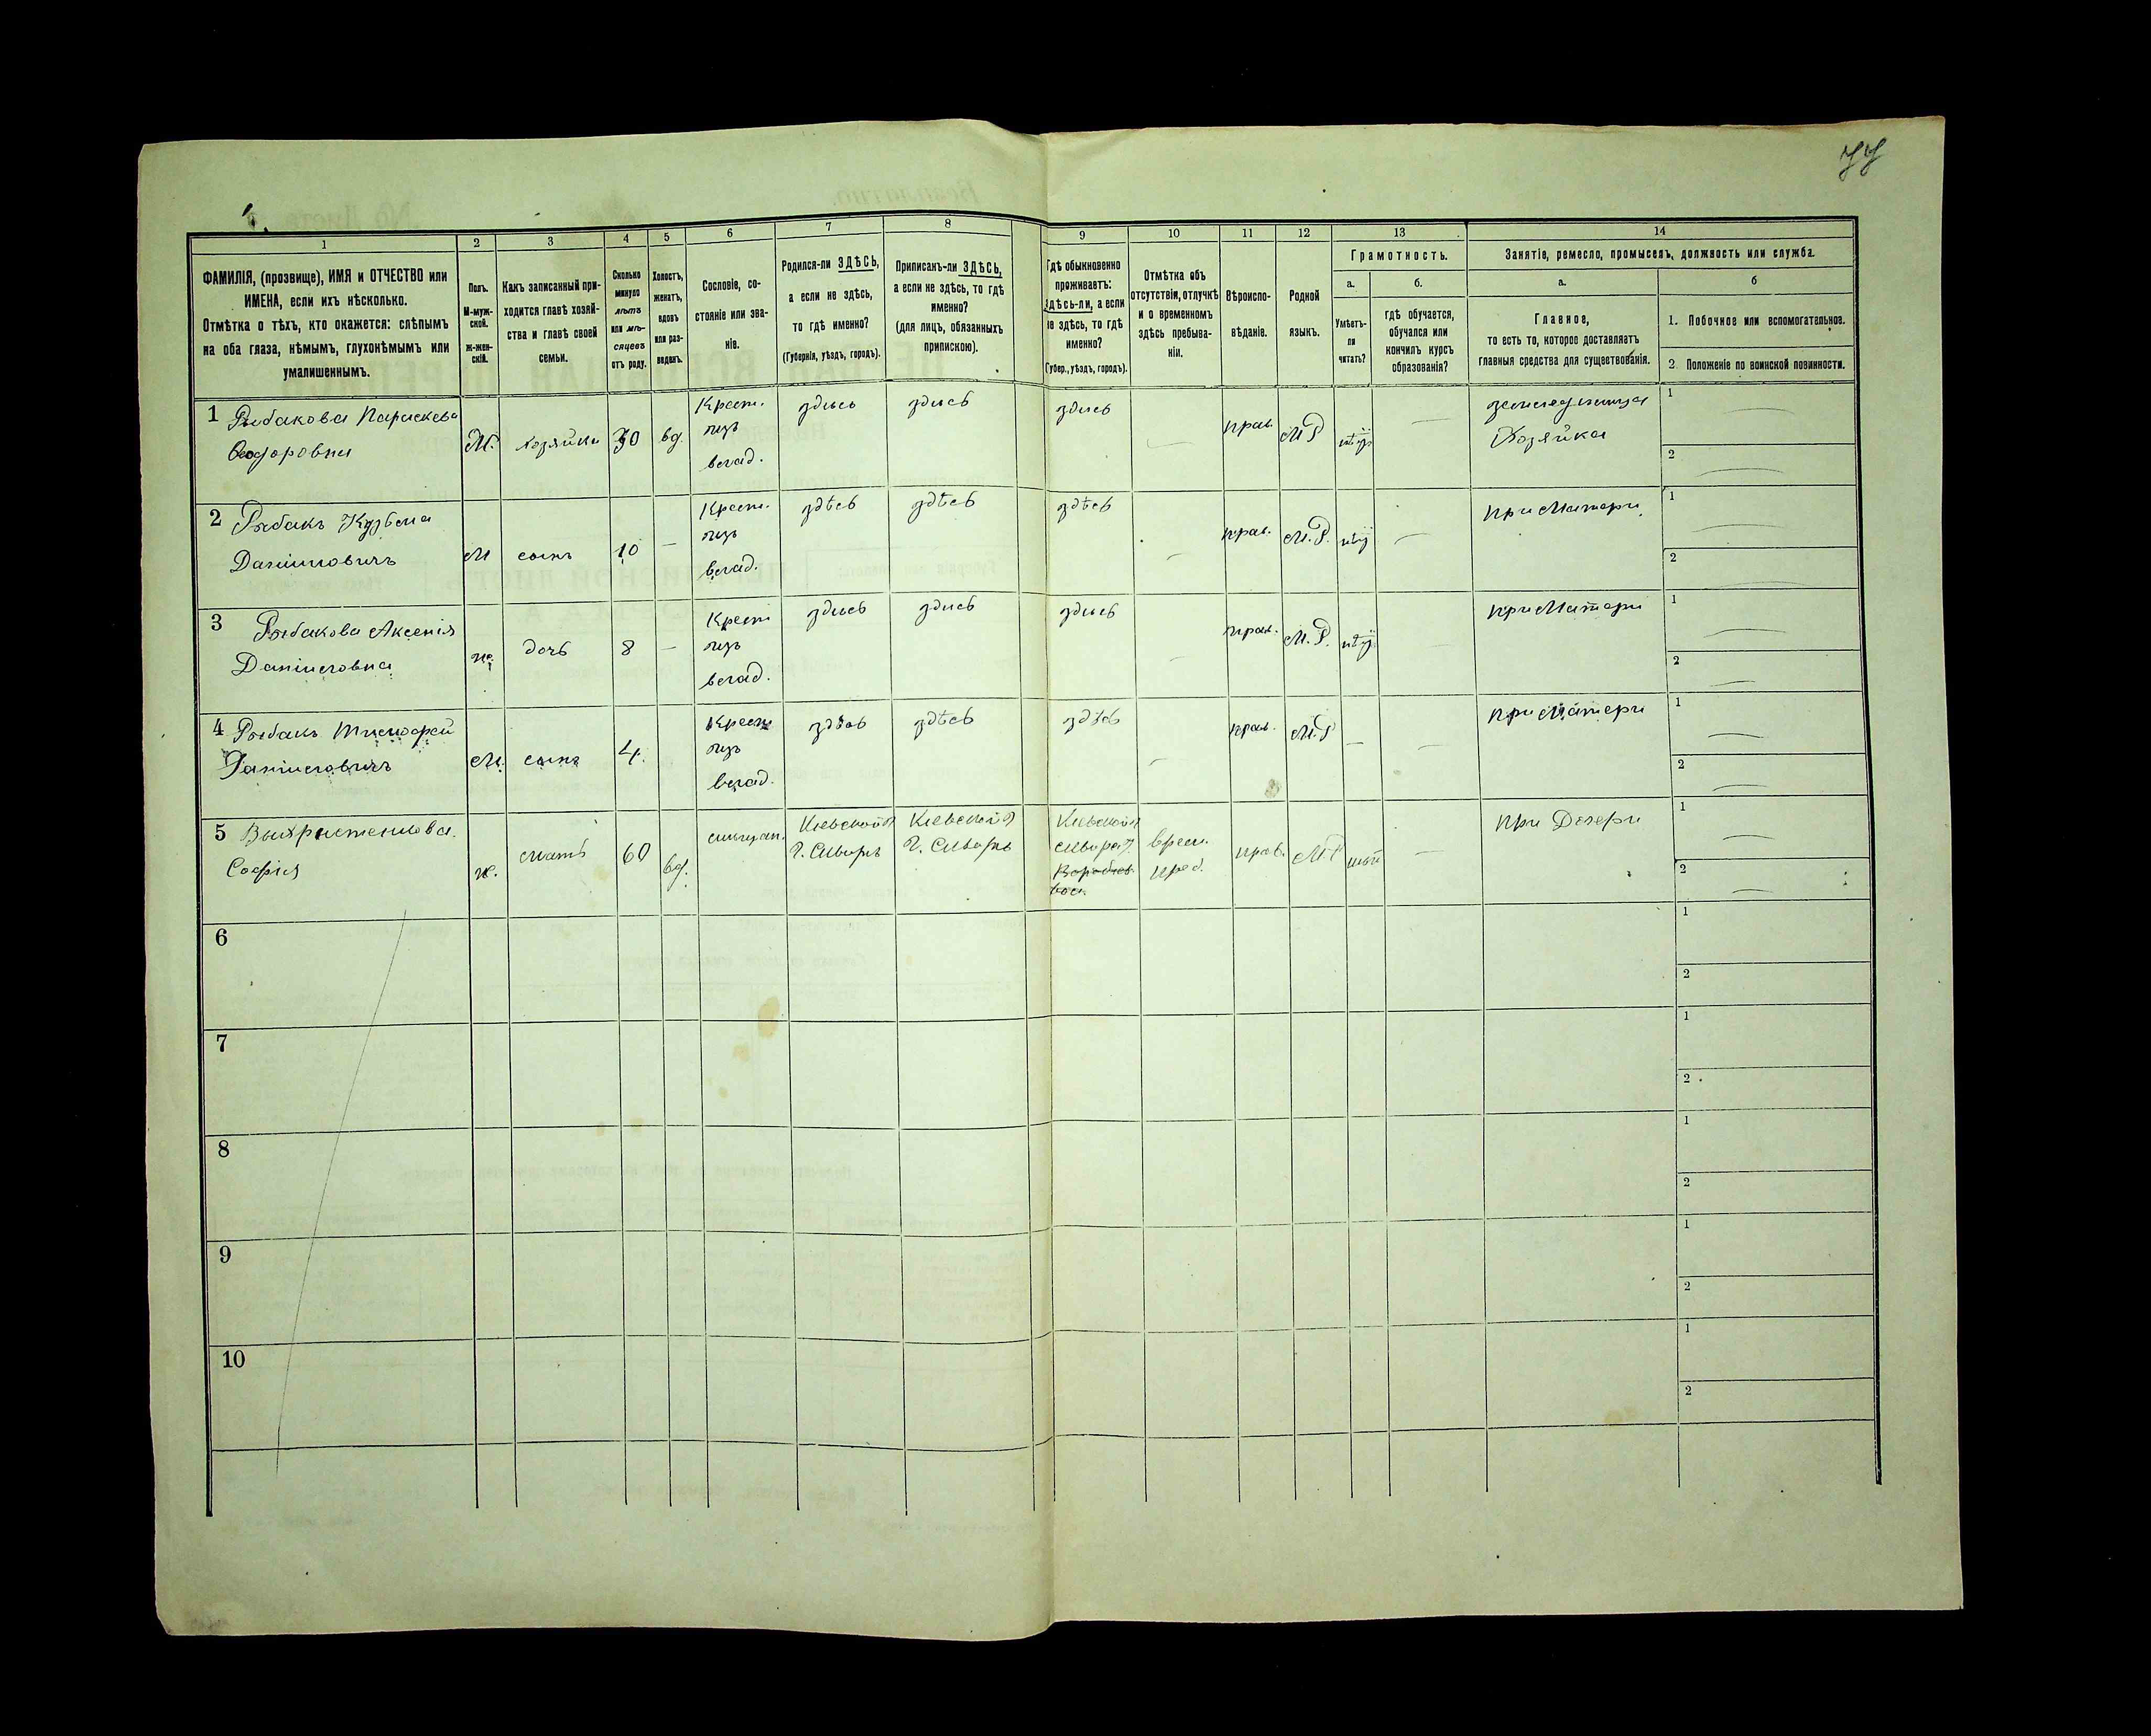 77
1 2 3 4 5 6 7 8 9 10 11 12 13 14
ФАМИЛІЯ, (прозвище), ИМЯ и ОТЧЕСТВО или
ИМЕНА, если ихъ нѣсколько.
Отмѣтка о тѣхъ, кто окажется: слѣпымъ
на оба глаза, нѣмымъ, глухонѣмымъ или
умалишеннымъ.
Полъ.
М-муж-
ской.
ж-жен-
скій.
Какъ записанный при-
ходится главѣ хозяй-
ства и главѣ своей
семьи.
Сколько
минуло
лѣтъ
или мѣ-
сяцевъ
отъ роду.
Холостъ,
женатъ,
вдовъ
или раз-
веденъ.
Сословіе, со-
стояніе или зва-
ніе.
Родился-ли ЗДѢСЬ,
а если не здѣсь,
то гдѣ именно?
(Губернія, уѣздъ, городъ).
Приписанъ-ли ЗДѢСЬ,
а если не здѣсь, то гдѣ
именно?
(для лицъ, обязанныхъ
припискою).
Гдѣ обыкновенно
проживаетъ:
здѣсь-ли, а если
не здѣсь, то гдѣ
именно?
(Губер., уѣздъ, городъ).
Отмѣтка объ
отсутствіи, отлучкѣ
и о временномъ
здѣсь пребыва-
ніи.
Вѣроиспо-
вѣданіе.
Родной
языкъ.
Грамотность.
а.
Умѣетъ-
ли
читать?
б.
гдѣ обучается,
обучался или
кончилъ курсъ
образованія?
Занятіе, ремесло, промыселъ, должность или служба.
а.
Главное,
то есть то, которое доставляетъ
главныя средства для существованія.
б
1. Побочное или вспомогательное.
2. Положеніе по воинской повинности.
1 Рыбакова Параскева
Ѳеодоровна
М. хозяйка 30 вд.
Крест.
изъ
влад.
здѣсь здѣсь здѣсь — прав. М Р нѣтъ —
Хозяйка
1 —
2 —
2 Рыбакъ Кузьма
Даніиловичъ
М сынъ 10 —
Крест.
изъ
влад.
здѣсь здѣсь здѣсь — прав. М.Р. нѣтъ —
при Матери
1 —
2 —
3 Рыбакова Аксенія
Даніиловна
ж. дочь 8 —
Крест
изъ
влад.
здѣсь здѣсь здѣсь — прав. М.Р. нѣтъ —
при Матери
1 —
2 —
4 Рыбакъ Тимофей
Даніиловичъ
М. сынъ 4.
Крест
изъ
влад.
здѣсь здѣсь здѣсь — прав. М.Р — —
при Матери
1 —
2 —
5
Софія
ж. мать 60 вд.
Кіевской г
г. Сквиръ
Кіевской г
г. Сквиръ
Кіевской г
врем.
преб.
прав. М.Р —
при Дочери
1 —
2 —
6
1
2
7
1
2
8
1
2
9
1
2
10
1
2